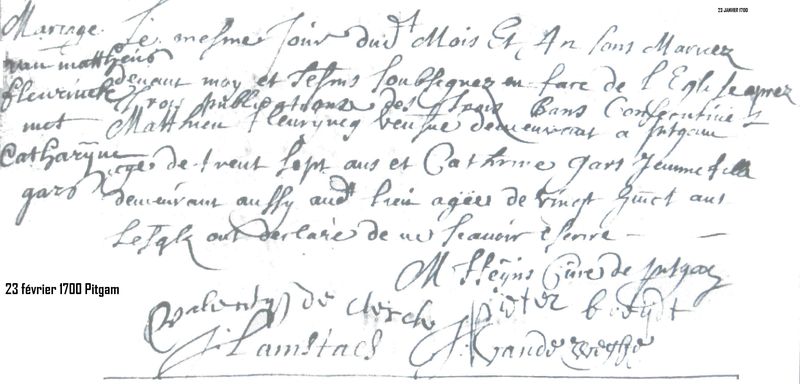 23 JANVIER 1700
Mariage
van mattheus
fleurinck
met
Catharijne
gars
Le mesme Jour dudt Mois Et An sons Mariez
devant moy et tesms soubsignez en face de l'Eglise aprez
trois publications des trois Bans Consecutives
Matthieu fleurijncq veusve demeurant a pitgam
agé de trent sept ans et Cathrine Gars Jeunne fille
demeurant aussy audt lieu agéé de vingt ans
Lesqls ont declaré de ne scavoir escrire
M Steijns Cure de pitgam
23 février 1700 Pitgam
Valentijn de clerck pieter
J Lamstaes vande